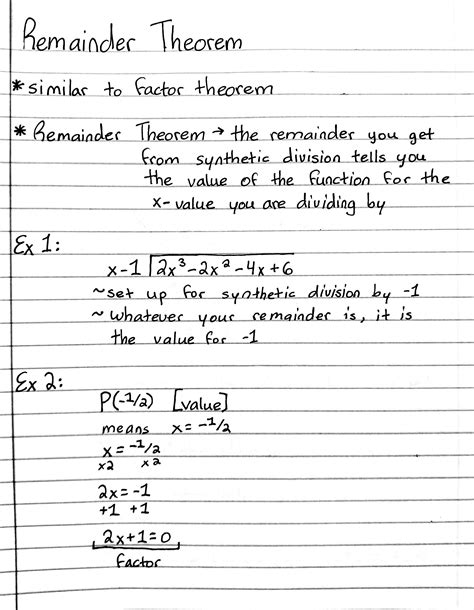 Remainder Theorem
* similar to factor theorem
* Remainder Theorem → the remainder you get
from synthetic division tells you
the value of the function for the
x-value you are dividing by
Ex 1:
x-1 2x³-2x²-4x+6
~set up for synthetic division by -1
~ whatever your remainder is, it is
the value for -1
Ex 2:
P(-1/2) [value]
means x= -1/2
x= -1/2
x2 x2
2x= -1
+1 +1
2x+1=0
factor